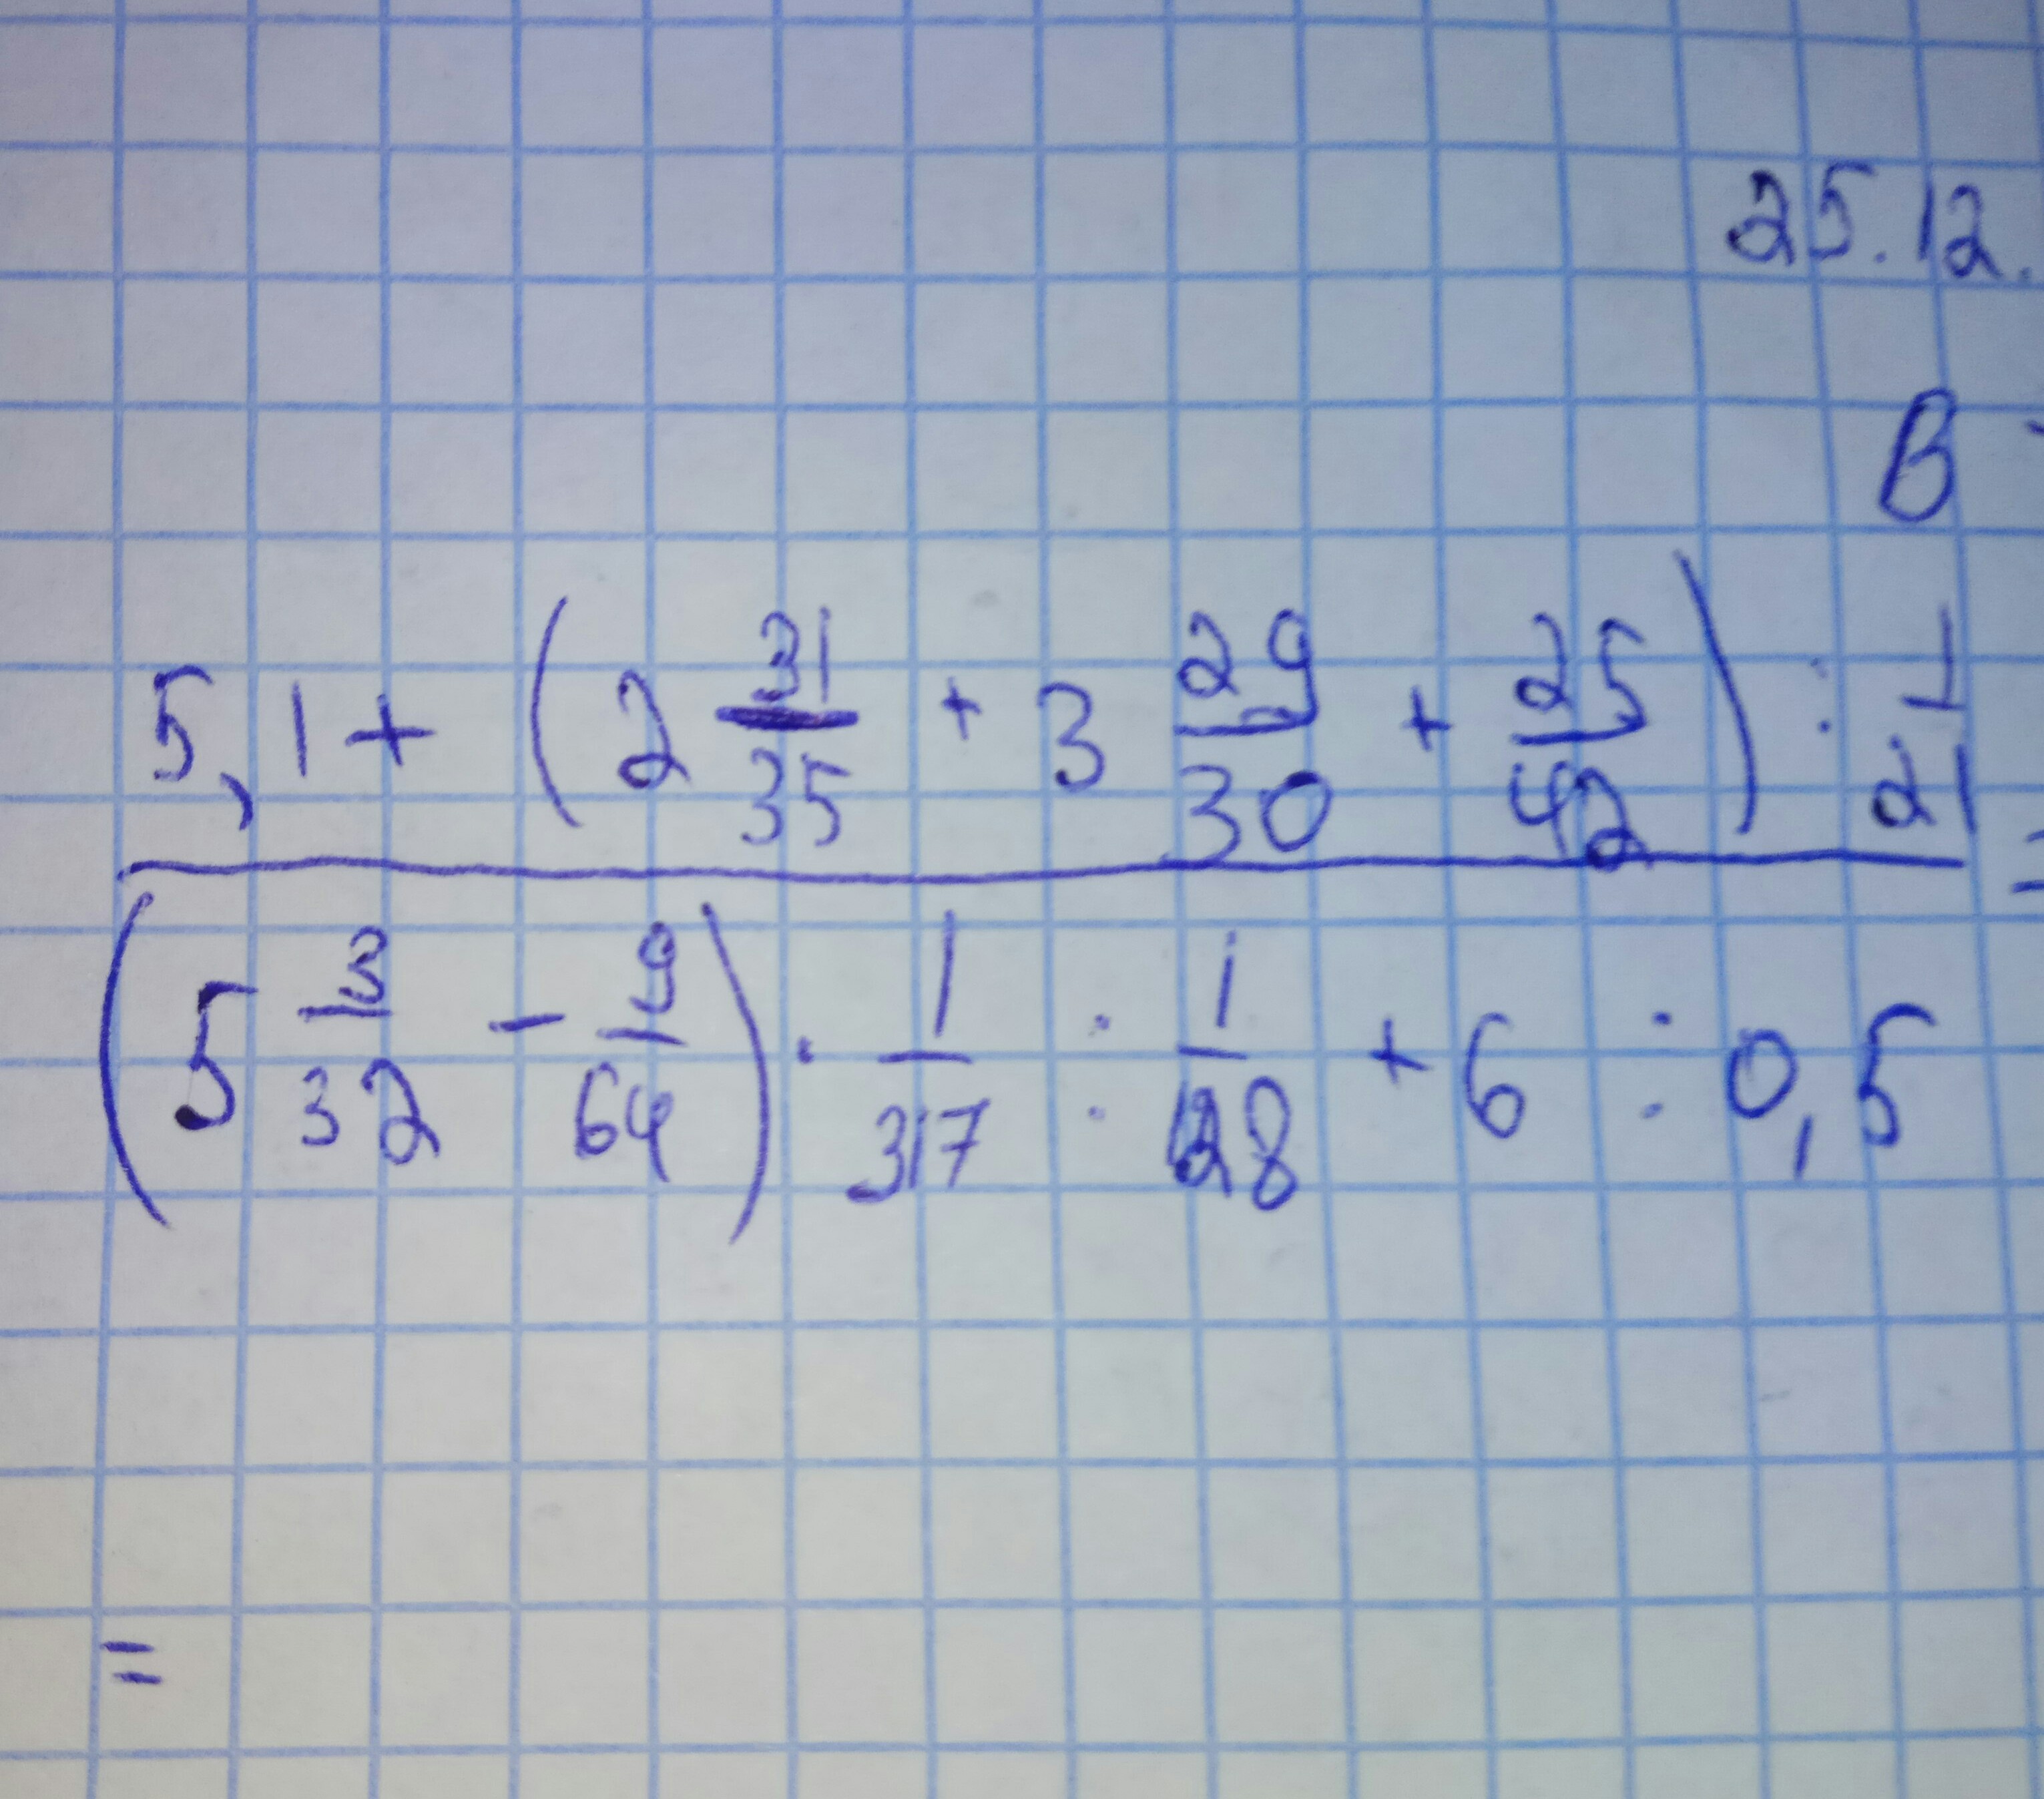 25.12.
В
5,1 + (2 31/35 + 3 29/30 + 25/42) : 1/21 =
(5 3/32 - 9/64) · 1/317 : 1/128 + 6 : 0,5
=